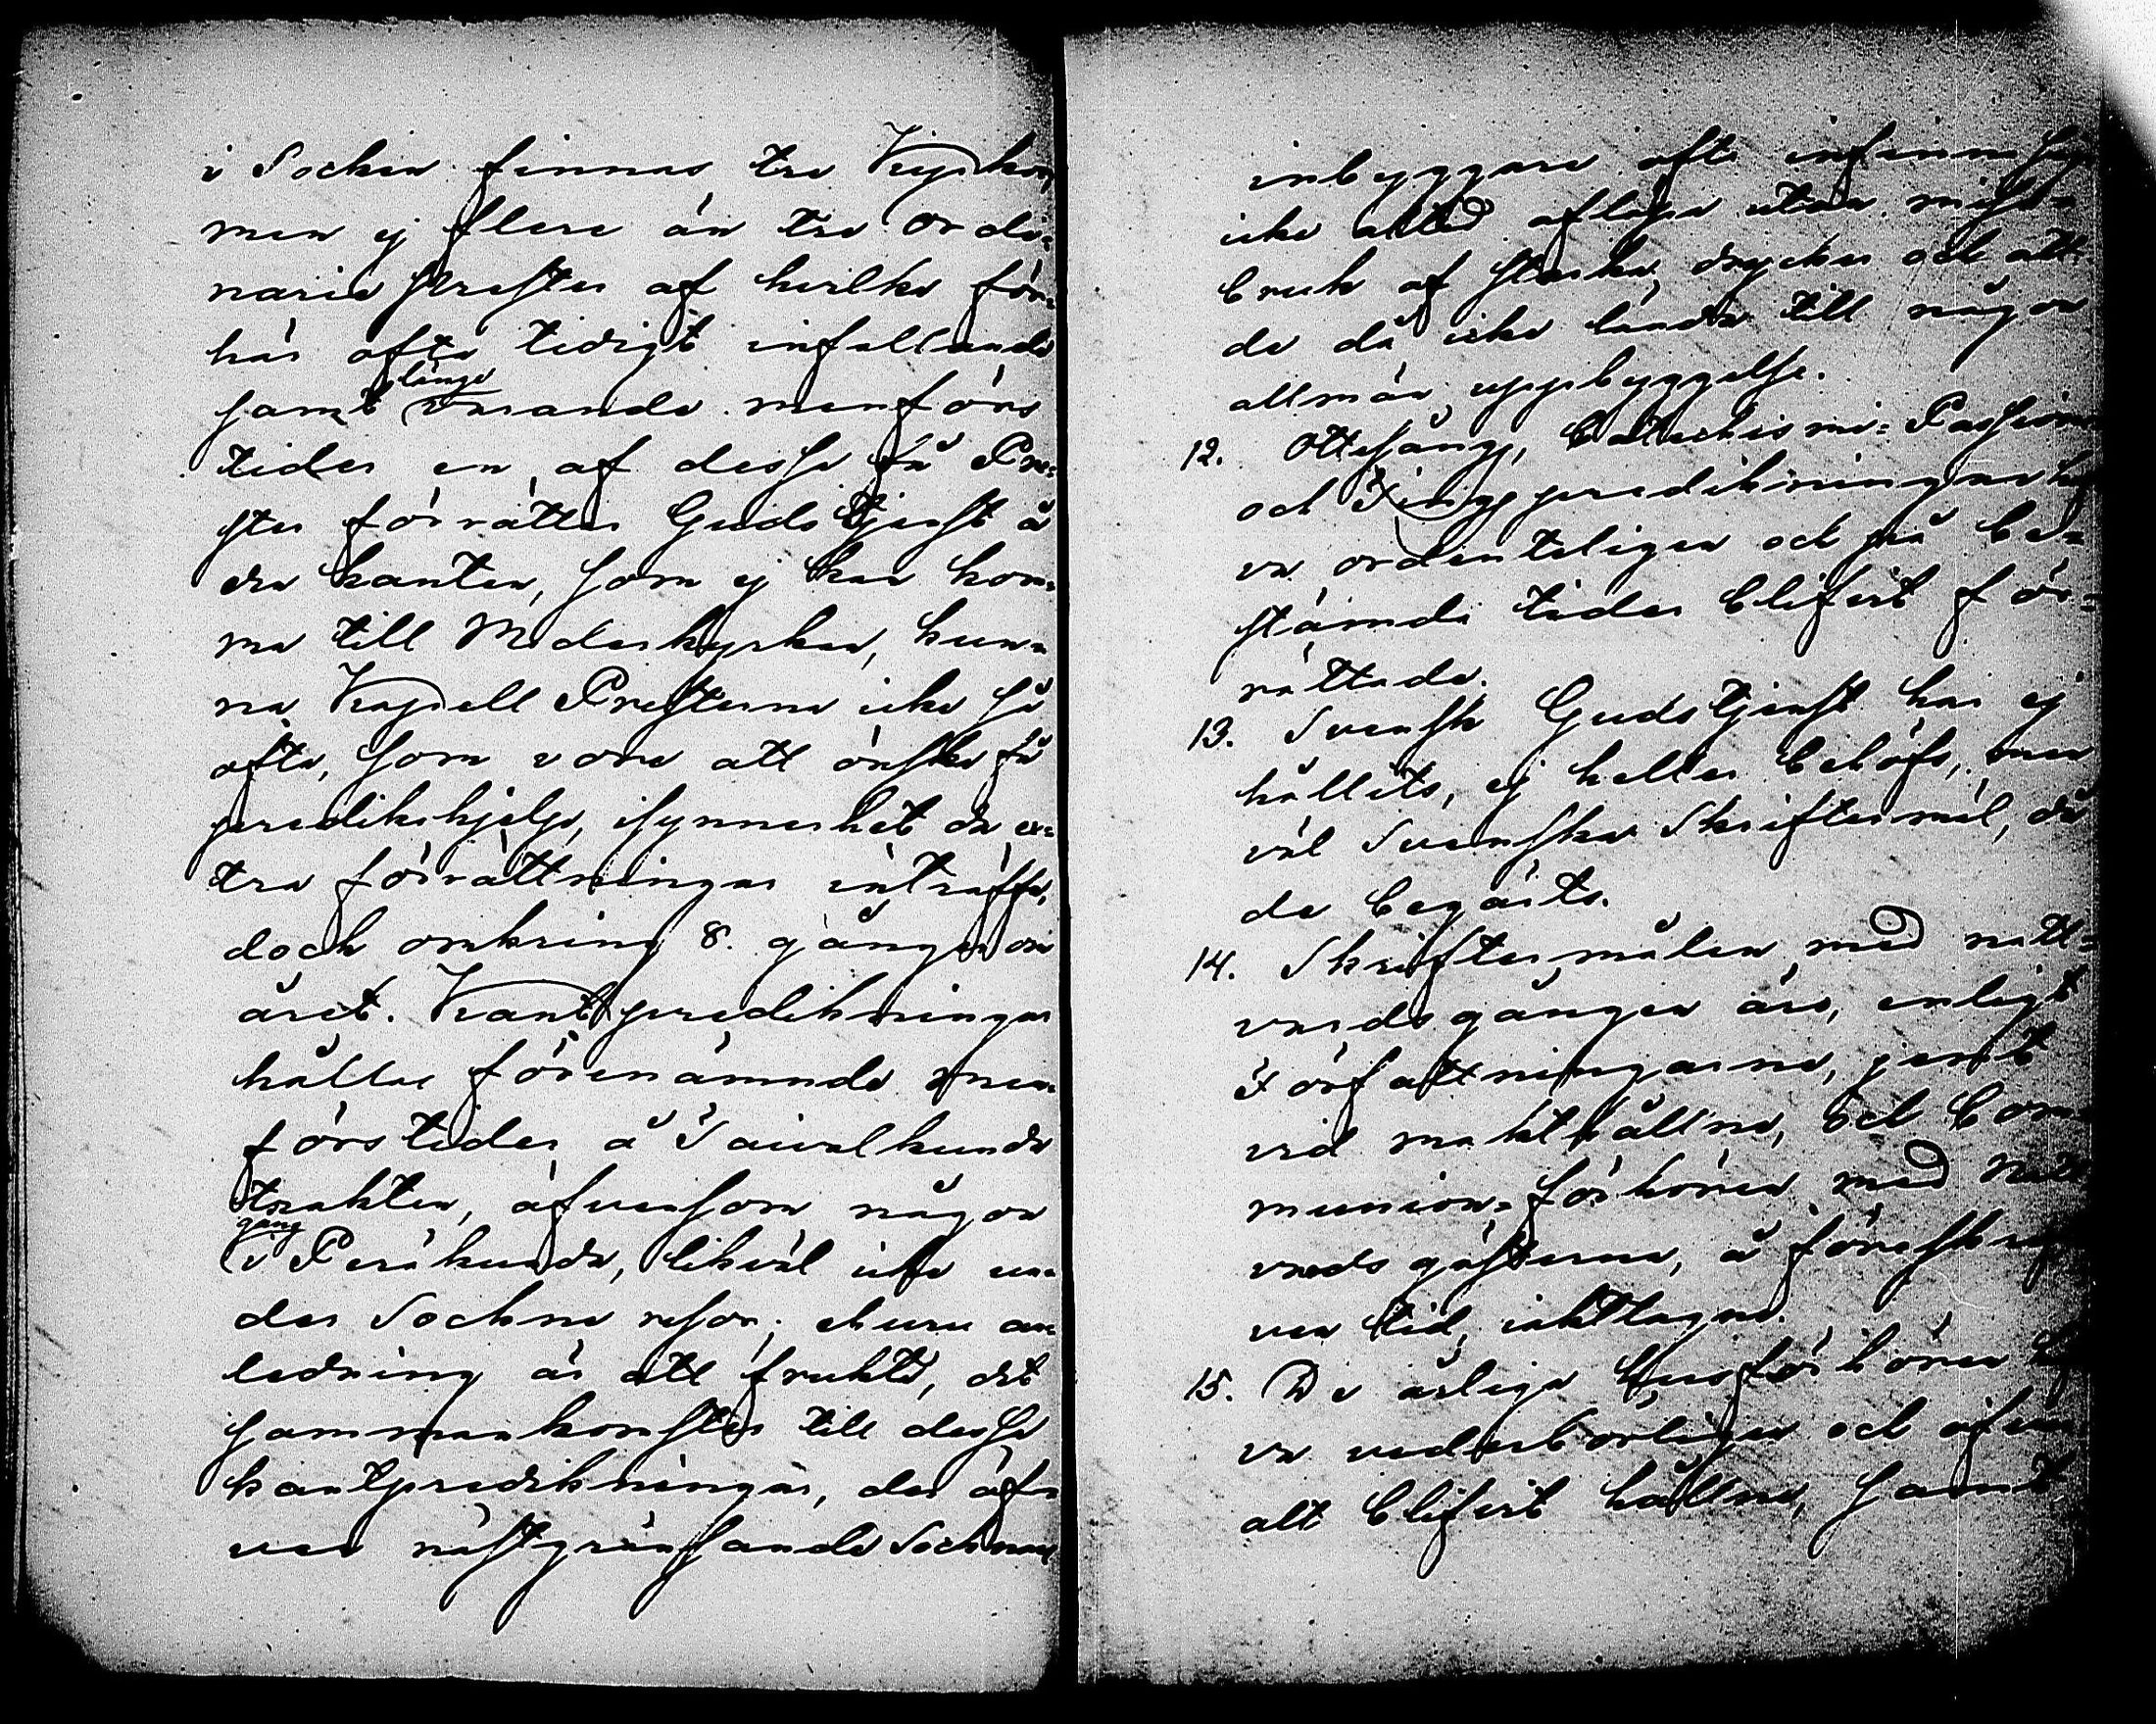 i Socken finnas tre Kyrkor,
men ej flere än tre ordi=
narie Prester af hvilka för
här ofta tidigt infallande
samt länge varande menförs
tider en af desse få Pre=
ster förrättar Gudstjenst å
den kanten, som ej kan kom=
ma till Moderkyrkan, kun=
na Kapell Presterna icke så
ofta, som vore att önska få
predikohjelp, isynnerhet då ex=
tra förrättningar inträffa,
dock omkring 8. gånger om
året. Kantpredikningar
hållas förenämnde men=
förstider å Taivalkunda
trakten, äfvensom någon
gång i Peräkunda, likväl icke un=
der Sockne resor; ehuru an=
ledning är att frukta, det
sammankomster till desse
kantpredikningar, der äf=
ven nästgränsande Socknars
inbyggare ofta infinna sig
icke alltid aflöpa utan miss=
bruk af starka drycker och att
de då icke lända till någon
allmän uppbyggelse.
12. Ottesång, Catechismi= Passions
och Böngspredikningar haf
va ordenteligen och på be=
stämda tider blifvit för=
rättade.
13. Svensk Gudstjenst har ej
hållits, ej heller behöfs, men
väl Svenska Skriftermål, då
de begärts.
14. Skriftermålen med natt=
vardsgången äro, enligt
Författningarne, jemt
vid makthållne, och Com
munion=förhören med Natt
vardsgästerna, å föreskrif
ven tid, iakttagne.
15. De årliga Husförhören haf
va vederbörligen och öfver
alt blifvit hållne, samt